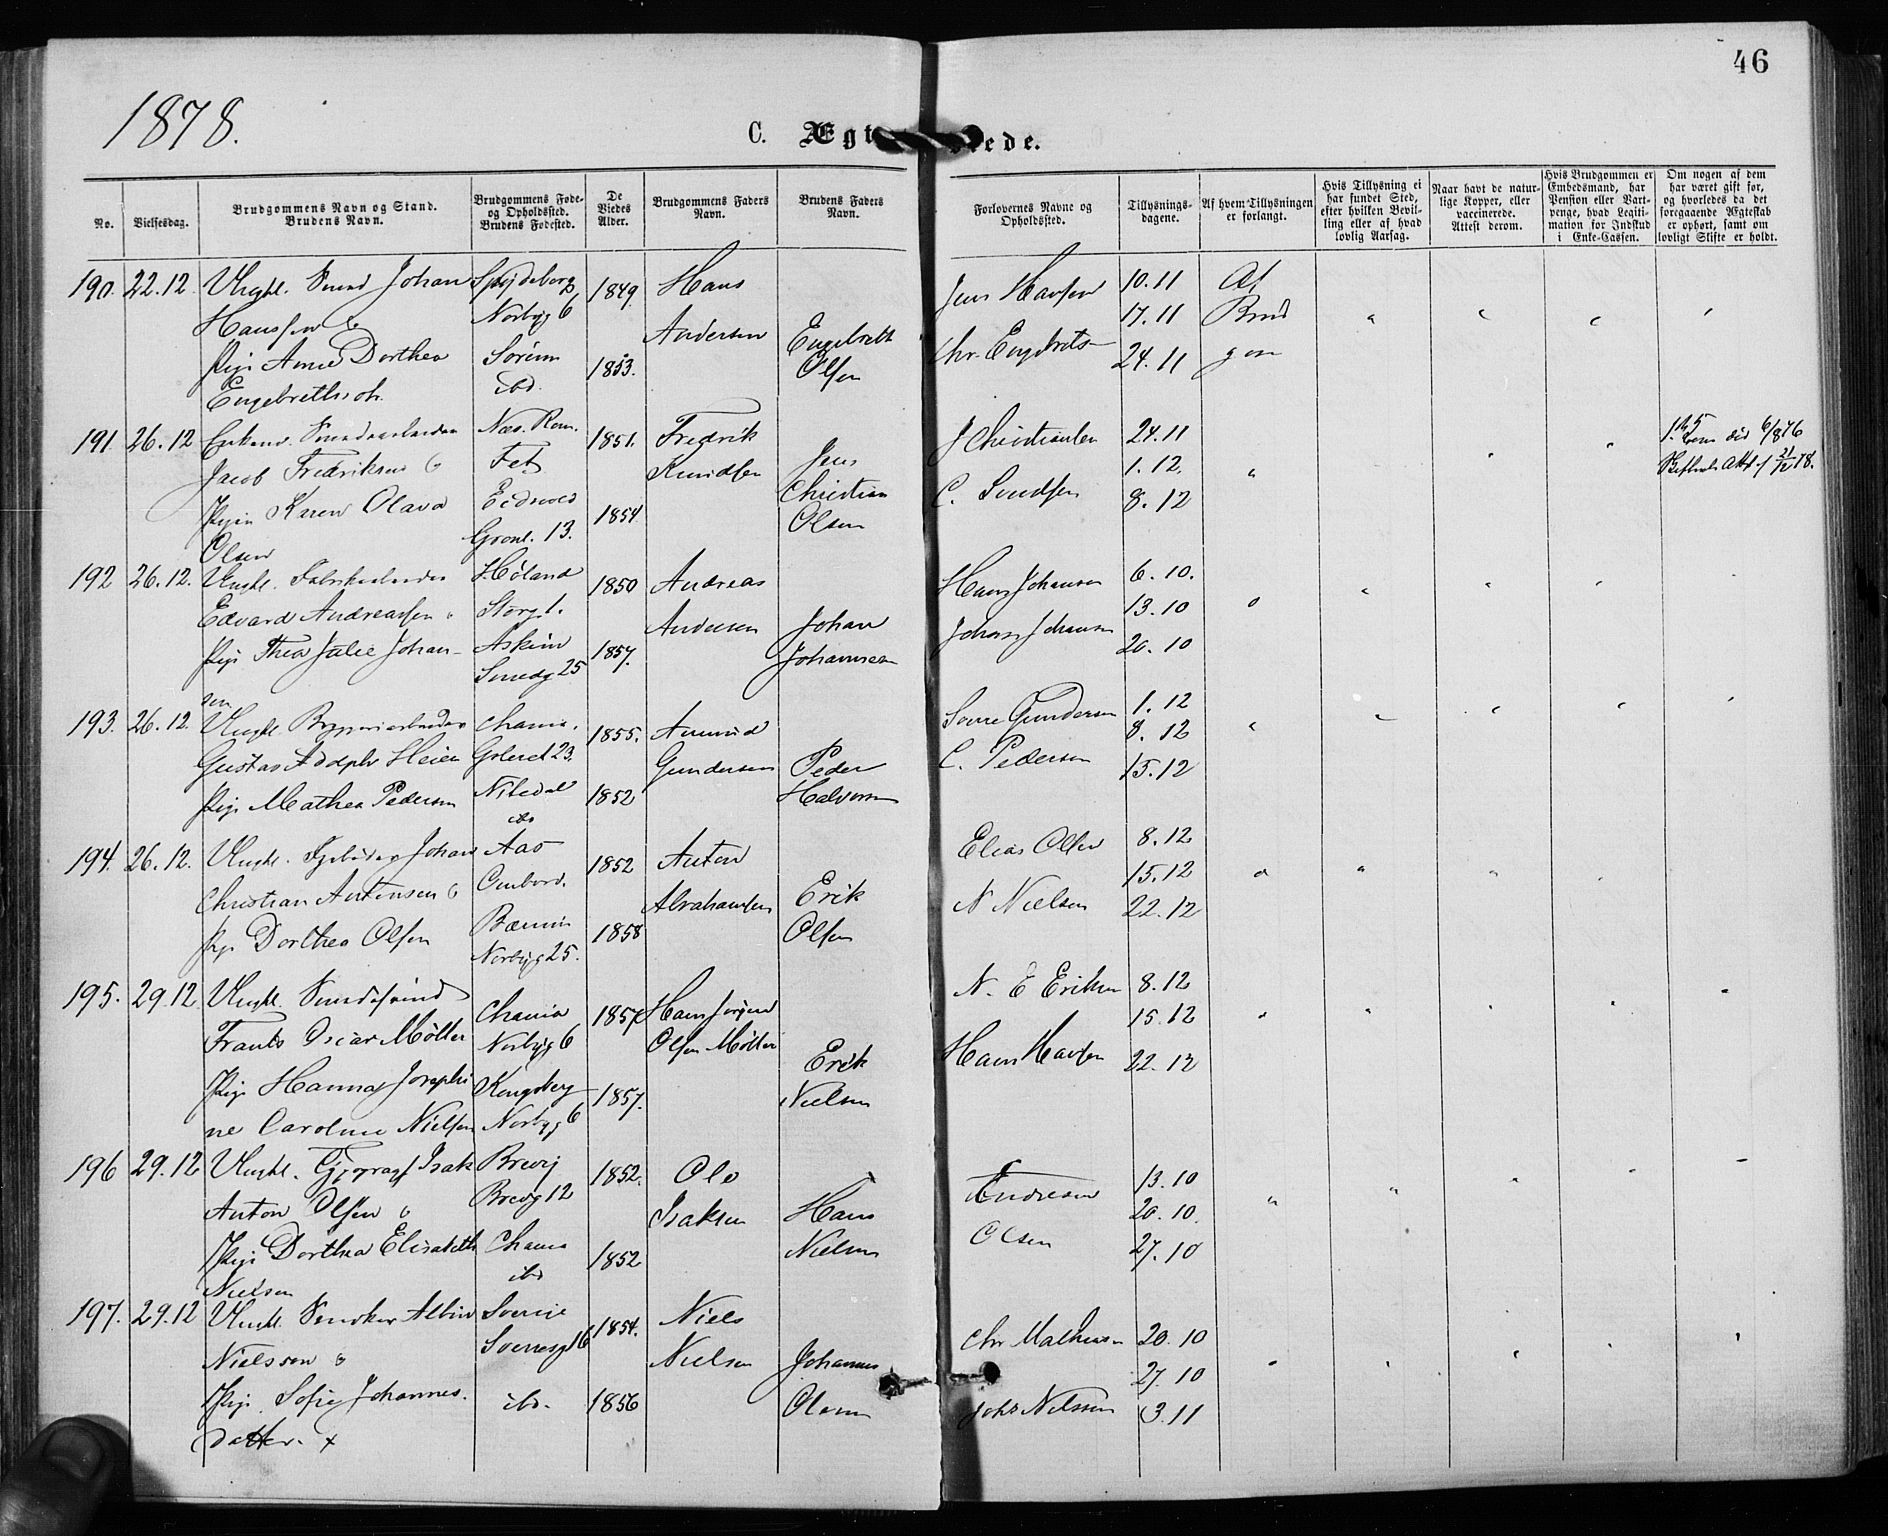 46
1878.
C. Ægt
ede.
No.
Vielsesdag.
Brudgommens Navn og Stand.
Brudens Navn.
Brudgommens Føde-
og Opholdssted.
Brudens Fødested.
De
Viedes
Alder.
Brudgommens Faders
Navn.
Brudens Faders
Navn.
Forlovernes Navne og
Opholdssted.
Tillysnings-
dagene.
Af hvem Tillysningen
er forlangt.
Hvis Tillysning ei
har fundet Sted,
efter hvilken Bevil-
ling eller af hvad
lovlig Aarsag.
Naar havt de natur-
lige Kopper, eller
vaccinerede.
Attest derom.
Hvis Brudgommen er
Embedsmand, har
Pension eller Vart-
penge, hvad Legiti-
mation for Indskud
i Enke-Cassen.
Om nogen af dem
har været gift før,
og hvorledes da det
foregaaende Ægteskab
er ophørt, samt om
lovligt Skifte er holdt.
190. 22.12. Ungkl. Smed Johan Spydeberg 1849. Hans Jens Hansen 10.11 Af
Hanssen & Norbyg 6 Andersen Engebreth 17.11 Brud
Pige Anne Dorthea Sørum 1853. Olsen Chr. Engebrets- 24.11 gom
Engebrethsdh. ibd.
191. 26.12 Enkem. Næs. Rom. 1851. Fredrik J Christiansen 24.11
Jacob Fredriksen & Fet Knudsen Jens 1.12.
Pigen Karen Olava Eidsvold 1854 Christian C. 8.12
Olsen Grønl. 13. Olsen
192 26.12. Ungkl. Fabrikarbeider Høland 1850 Andreas Hans Johansen 6.10.
Edvard Andreassen & Storgt. Andersen Johan Johansen 13.10
Pige Thea Julie Johan- Askim 1857. Johannesen 20.10
sen Smedg 25
193. 26.12. Ungkl. Chania. 1855. Amund Gundersen 1.12
Gustav Adolph 23. Gundersen Peder C. Pedersen 8.12
Pige Mathea Pedersen Nitedal 1852 Halvorsen 15.12
ibd
194. 26.12. Ungkl. Johan Aas 1852 Anton Elias Olsen 8.12
Christian Antonsen & Ombord. Abrahamsen Erik 15.12
Pige Dorthea Olsen Bærum 1858 Olsen N Nielsen 22.12
Norbyg 25.
195. 29.12 Ungkl. Chania 1857 Hans Jørgen N. E Eriksen 8.12
Frants Oscar Møller Norbyg 6 Olsen Møller Erik 15.12
Pige Hanna Josephi Kongsberg 1857. Nielsen Hans Hansen 22.12
ne Caroline Nielsen Norbyg 6
196 29.12 Ungkl. Typograf Isak Brevig 1852. Ole Andresen 13.10
Anton Olsen & Bredg 12 Isaksen Hans 20.10.
Pige Dorthea Elisabeth Chania 1852 Nielsen Olsen 27.10
Nielsen ibd
197. 29.12 Ungkl. Snedker Albin Sverrie 1854. Niels Chr Mathiesen 20.10
Nielsson & Sverresg 16 Nielsen Johannes 27.10
Pige Sofie Johannes. ibd. 1856 Olsson Johs Nilssen 3.11
datter. x